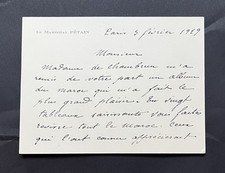 Le Maréchal PÉTAIN
Paris 3 février 1929
Monsieur
Madame de Chambrun m'a
remis de votre part un album
du Maroc qui m'a fait le
plus grand plaisir. En vingt
tableaux saisissants vous faites
revivre tout le Maroc. Ceux
qui l'ont connu apprécieront